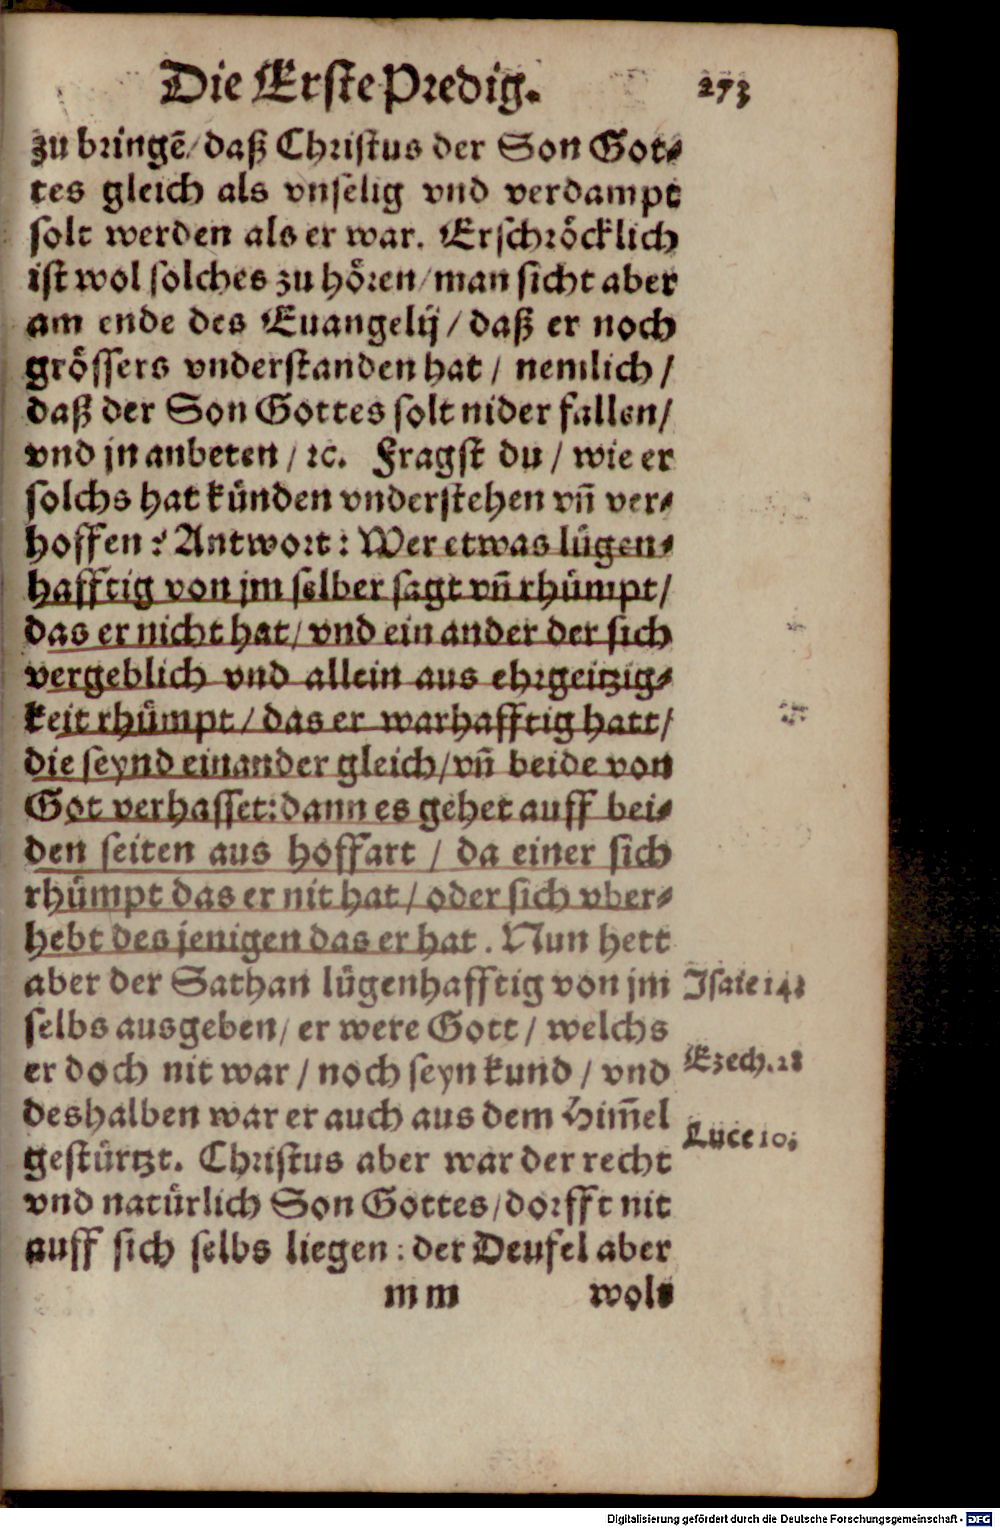 Die Erste Predig. 273
zu bringẽ/ daß Christus der Son Got-
tes gleich als vnselig vnd verdampt
solt werden als er war. Erschröcklich
ist wol solches zu hören/ man sicht aber
am ende des Euangelij/ daß er noch
grössers vnderstanden hat/ nemlich/
daß der Son Gottes solt nider fallen/
vnd jn anbeten/ ꝛc. Fragst du/ wie er
solchs hat künden vnderstehen vñ ver-
hoffen? Antwort: Wer etwas lügen-
hafftig von jm selber sagt vñ rhümpt/
das er nicht hat/ vnd ein ander der sich
vergeblich vnd allein aus ehrgeitzig-
keit rhümpt/ das er warhafftig hatt/
die seynd einander gleich/ vñ beide von
Got verhasset: dann es gehet auff bei-
den seiten aus hoffart/ da einer sich
rhümpt das er nit hat/ oder sich vber-
hebt des jenigen das er hat. Nun hett
aber der Sathan lügenhafftig von jm Isaie 14.
selbs ausgeben/ er were Gott/ welchs
er doch nit war/ noch seyn kund/ vnd Ezech. 28
deshalben war er auch aus dem Him̃el
gestürtzt. Christus aber war der recht Luce 10.
vnd natürlich Son Gottes/ dorfft nit
auff sich selbs liegen: der Deufel aber
mm wolt
Digitalisierung gefördert durch die Deutsche Forschungsgemeinschaft - DFG